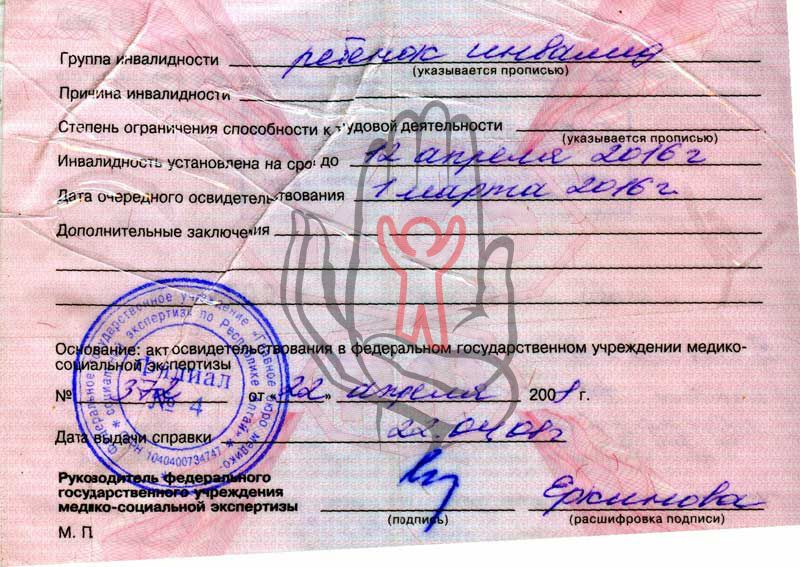 Группа инвалидности ребенок инвалид
(указывается прописью)
Причина инвалидности
Степень ограничения способности к трудовой деятельности
(указывается прописью)
Инвалидность установлена на срок до 12 апреля 2016 г
Дата очередного освидетельствования 1 марта 2016 г.
Дополнительные заключения
Основание: акт освидетельствования в федеральном государственном учреждении медико-
социальной экспертизы
№ 372 от «22» апреля 200 г.
Дата выдачи справки 22.04.08г
Руководитель федерального
государственного учреждения
медико-социальной экспертизы Еркинова
(подпись) (расшифровка подписи)
М. П.
Федеральное государственное учреждение «Главное бюро медико-
социальной экспертизы по Республике Алтай»
ОГРН 1040400734747
Филиал
№ 4